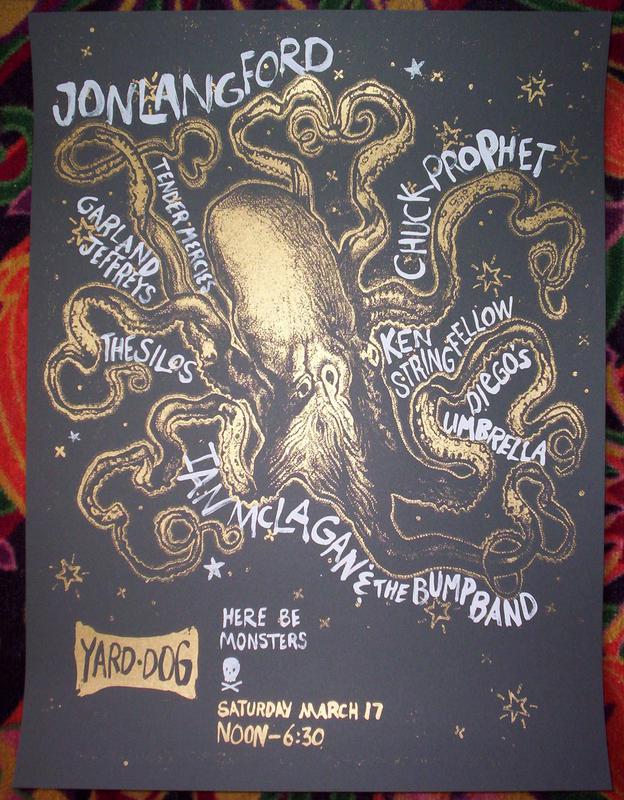 JON LANGFORD
TENDER MERCIES
CHUCK PROPHET
GARLAND
JEFFREYS
THE SILOS
KEN
STRINGFELLOW
DIEGO'S
UMBRELLA
IAN McLAGAN & THE BUMP BAND
YARD·DOG
HERE BE
MONSTERS
SATURDAY MARCH 17
NOON-6:30